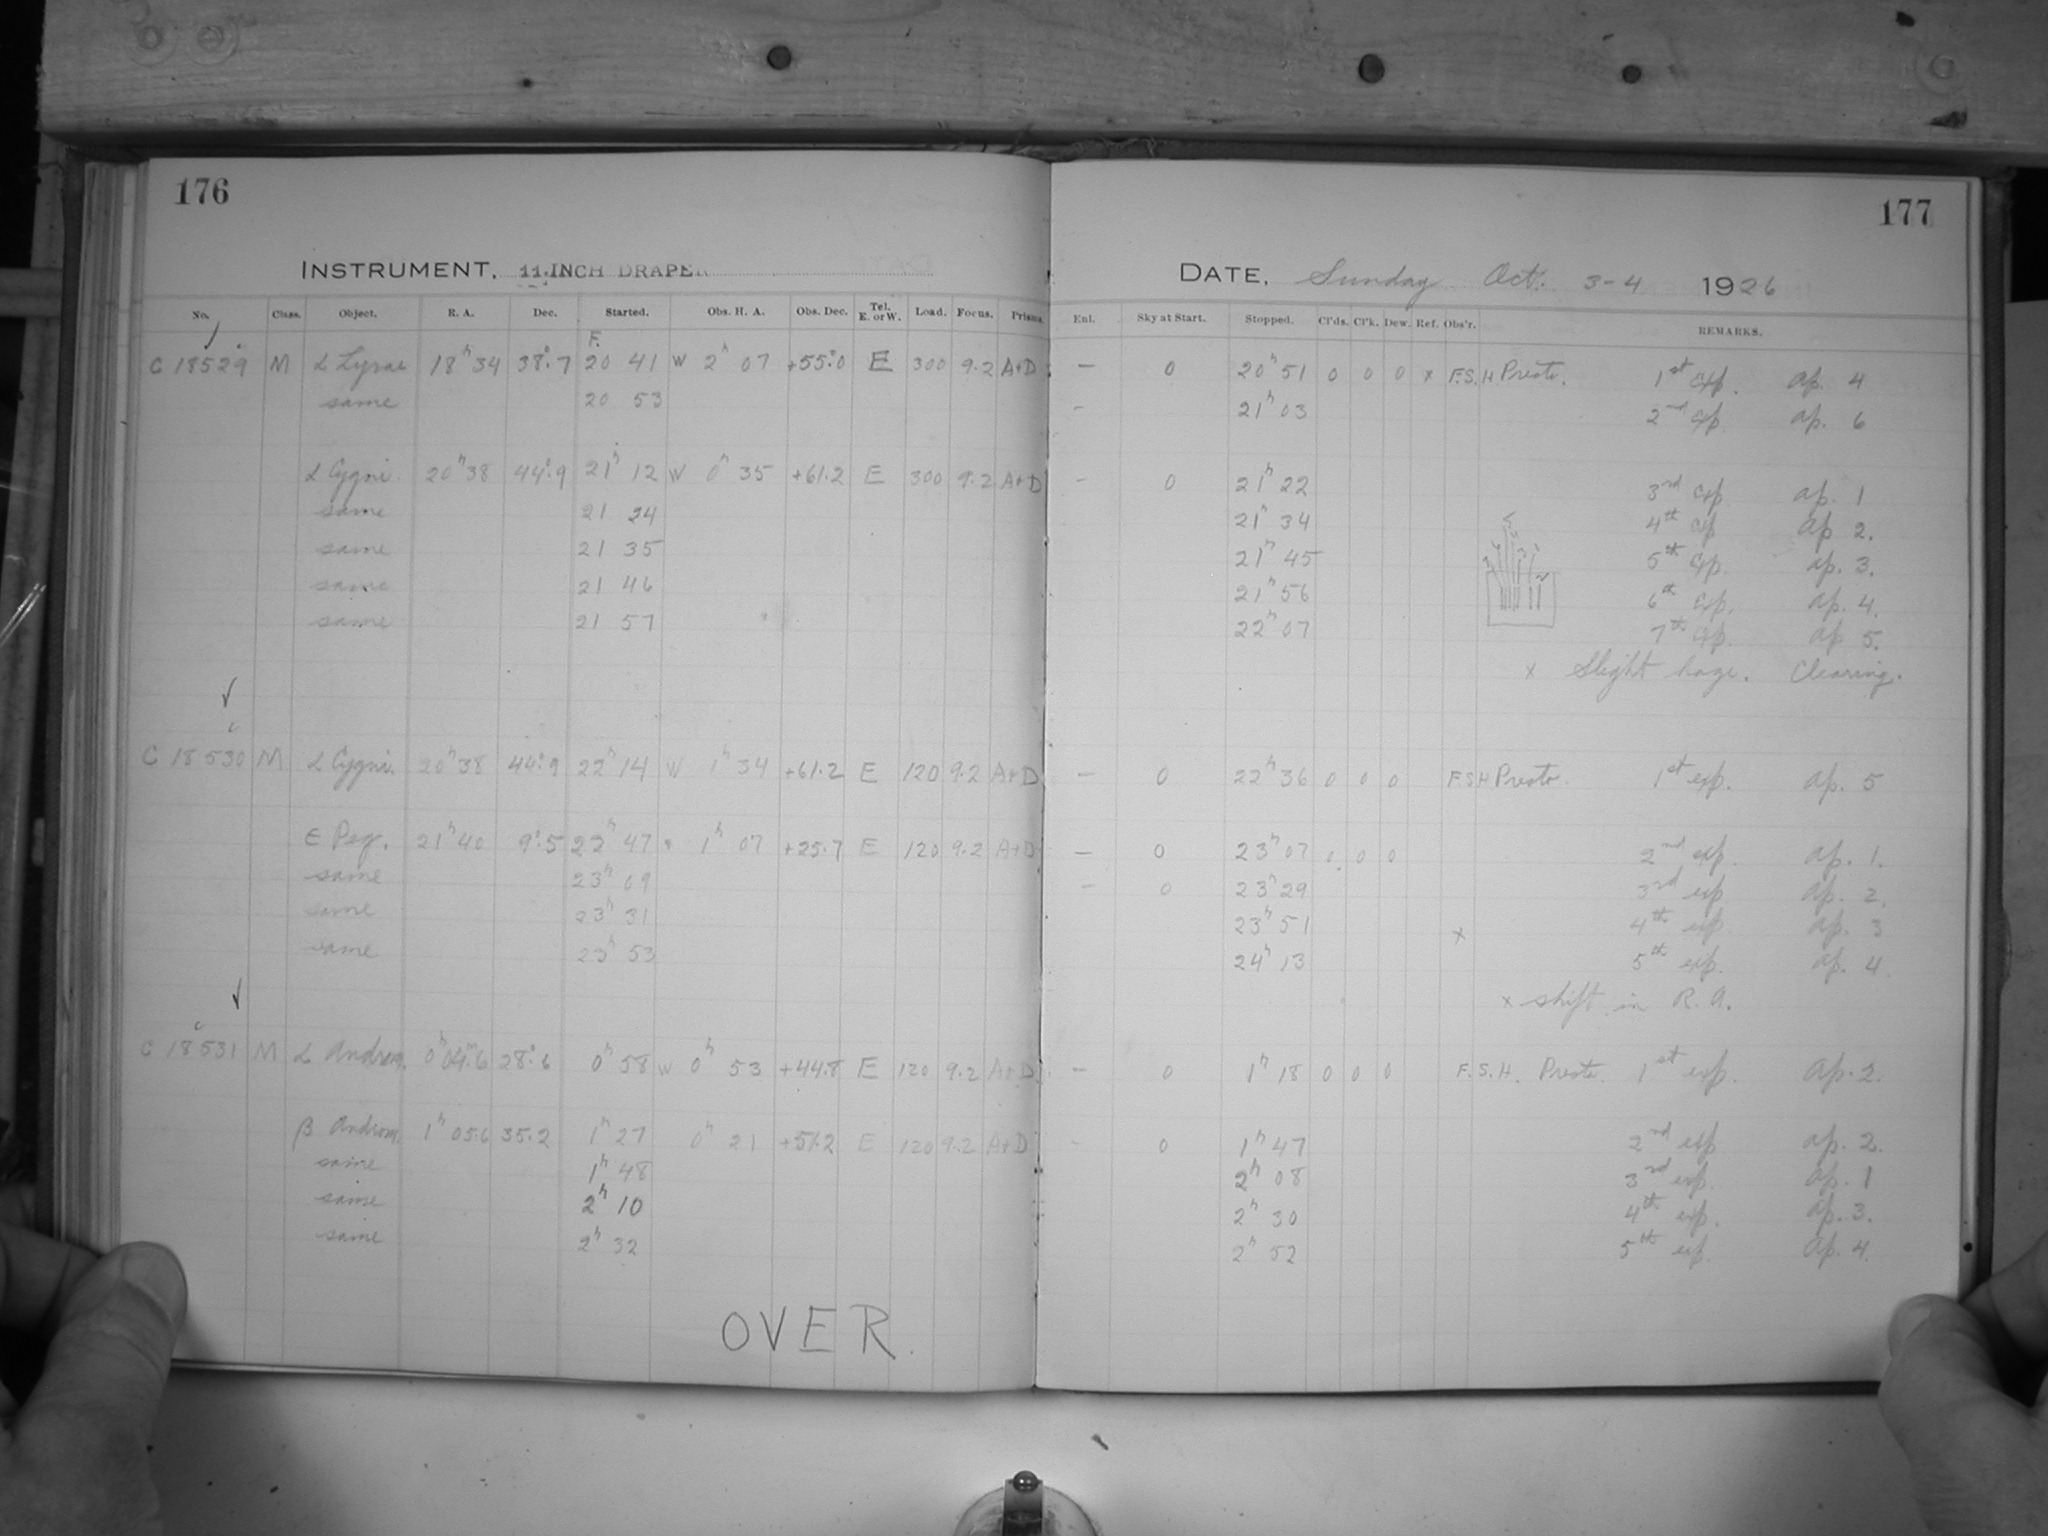 176
INSTRUMENT, 11-INCH DRAPER
No. Class. Object. R. A. Dec. Started. Obs. H. A. Obs. Dec. Tel. E. or W. Load. Focus. Prisms.
F.
C 18529 M α Lyrae 18h 34 38°.7 20 41 W 2h 07 +55°.0 E 300 9.2 A+D
same 20 53
α Cygni. 20h 38 44°.9 21h 12 W 0h 35 +61.2 E 300 9.2 A+D
same 21 24
same 21 35
same 21 46
same 21 57
C 18530 M α Cygni. 20h 38 44°.9 22h 14 W 1h 34 +61.2 E 120 9.2 A+D
ε Peg. 21h 40 9°.5 22h 47 1h 07 +25.7 E 120 9.2 A+D
same 23h 09
same 23h 31
same 23h 53
C 18531 M α Androm. 0h 04m.6 28°.6 0h 58 W 0h 53 +44.8 E 120 9.2 A+D
β Androm. 1h 05.6 35.2 1h 27 0h 21 +51.2 E 120 9.2 A+D
same 1h 48
same 2h 10
same 2h 32
OVER.
177
DATE, Sunday Oct. 3-4 1926
Enl. Sky at Start. Stopped. Cl'ds. Cl'k. Dew. Ref. Obs'r. REMARKS.
— 0 20h 51 0 0 0 x F.S.H Presto. 1st exp. ap. 4
- 21h 03 2nd exp. ap. 6
- 0 21h 22 3rd exp ap. 1
21h 34 4th exp ap 2.
21h 45 5th exp ap. 3.
21h 56 6th exp. ap. 4.
22h 07 7th exp. ap 5.
x Slight haze. Clearing.
— 0 22h 36 0 0 0 F.S.H Presto. 1st exp. ap. 5
— 0 23h 07 0 0 0 2nd exp. ap. 1.
- 0 23h 29 3rd exp ap. 2.
23h 51 x 4th exp ap. 3
24h 13 5th exp. ap. 4
x shift in R. A.
— 0 1h 18 0 0 0 F.S.H. Presto. 1st exp. ap. 2.
- 0 1h 47 2nd exp ap. 2.
2h 08 3rd exp. ap. 1
2h 30 4th exp. ap. 3.
2h 52 5th exp. ap. 4.